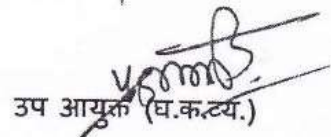 उप आयुक्त (घ.क.व्य.)